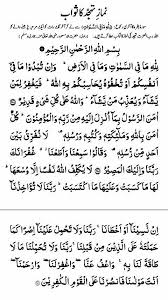 نمازِ تہجد کا ثواب
بِسْمِ اللّٰهِ الرَّحْمٰنِ الرَّحِيْمِ
لِلّٰهِ مَا فِي السَّمٰوٰتِ وَمَا فِي الْاَرْضِ ؕ وَاِنْ تُبْدُوْا مَا فِيْٓ
اَنْفُسِكُمْ اَوْ تُخْفُوْهُ يُحَاسِبْكُمْ بِهِ اللّٰهُ ؕ فَيَغْفِرُ لِمَنْ
يَّشَآءُ وَيُعَذِّبُ مَنْ يَّشَآءُ ؕ وَاللّٰهُ عَلٰى كُلِّ شَيْءٍ قَدِيْرٌ
اٰمَنَ الرَّسُوْلُ بِمَآ اُنْزِلَ اِلَيْهِ مِنْ رَّبِّهٖ وَالْمُؤْمِنُوْنَ ؕ كُلٌّ
اٰمَنَ بِاللّٰهِ وَمَلٰٓئِكَتِهٖ وَكُتُبِهٖ وَرُسُلِهٖ ؕ لَا نُفَرِّقُ بَيْنَ
اَحَدٍ مِّنْ رُّسُلِهٖ ؕ وَقَالُوْا سَمِعْنَا وَاَطَعْنَا غُفْرَانَكَ رَبَّنَا
وَاِلَيْكَ الْمَصِيْرُ لَا يُكَلِّفُ اللّٰهُ نَفْسًا اِلَّا وُسْعَهَا ؕ
لَهَا مَا كَسَبَتْ وَعَلَيْهَا مَا اكْتَسَبَتْ ؕ رَبَّنَا لَا تُؤَاخِذْنَآ
اِنْ نَّسِيْنَآ اَوْ اَخْطَاْنَا ۚ رَبَّنَا وَلَا تَحْمِلْ عَلَيْنَآ اِصْرًا كَمَا
حَمَلْتَهٗ عَلَى الَّذِيْنَ مِنْ قَبْلِنَا ۚ رَبَّنَا وَلَا تُحَمِّلْنَا مَا لَا
طَاقَةَ لَنَا بِهٖ ۚ وَاعْفُ عَنَّا ٝ وَاغْفِرْ لَنَا ٝ وَارْحَمْنَا ٝ
اَنْتَ مَوْلٰىنَا فَانْصُرْنَا عَلَى الْقَوْمِ الْكٰفِرِيْنَ